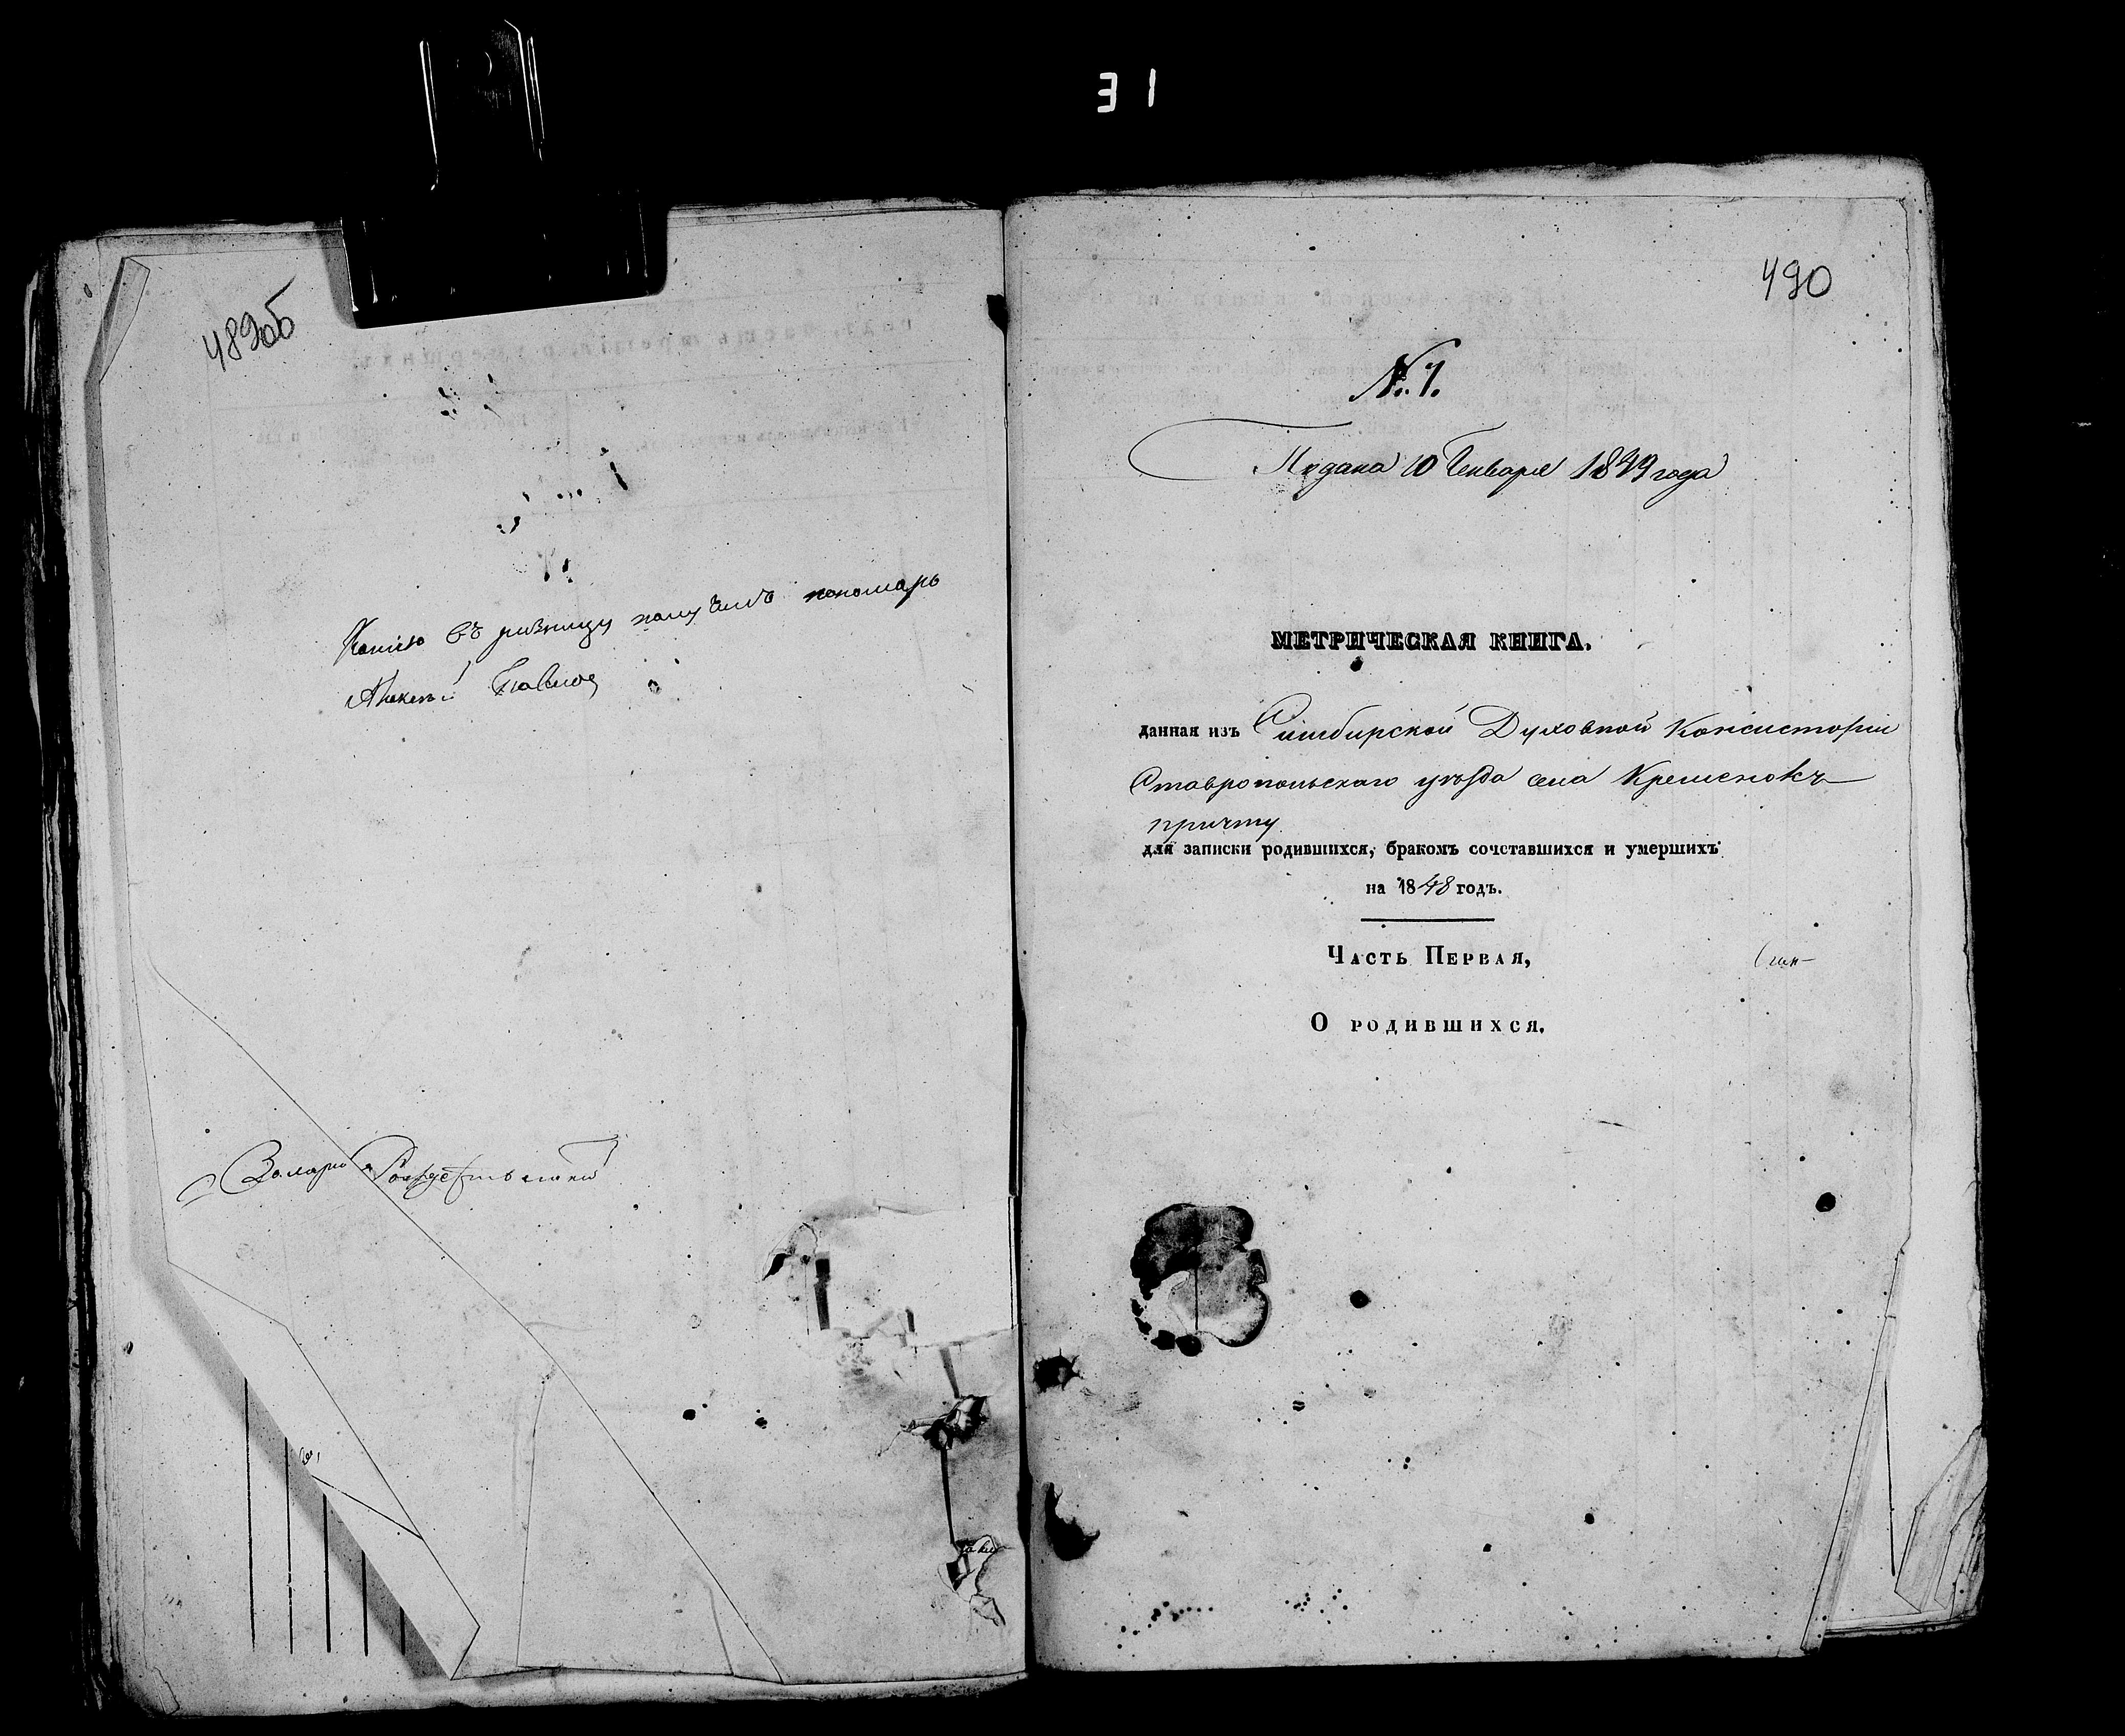 31
489об
Копію въ ризницу получилъ пономарь
Алексѣй Павлов
Рождественской
490
№ 1.
Подана 10 Генваря 1849 года
МЕТРИЧЕСКАЯ КНИГА,
данная изъ Симбирской Духовной Консисторіи
Ставропольскаго уѣзда села Кременокъ
причту
для записки родившихся, бракомъ сочетавшихся и умершихъ
на 1848 годъ.
Часть Первая,
О родившихся.